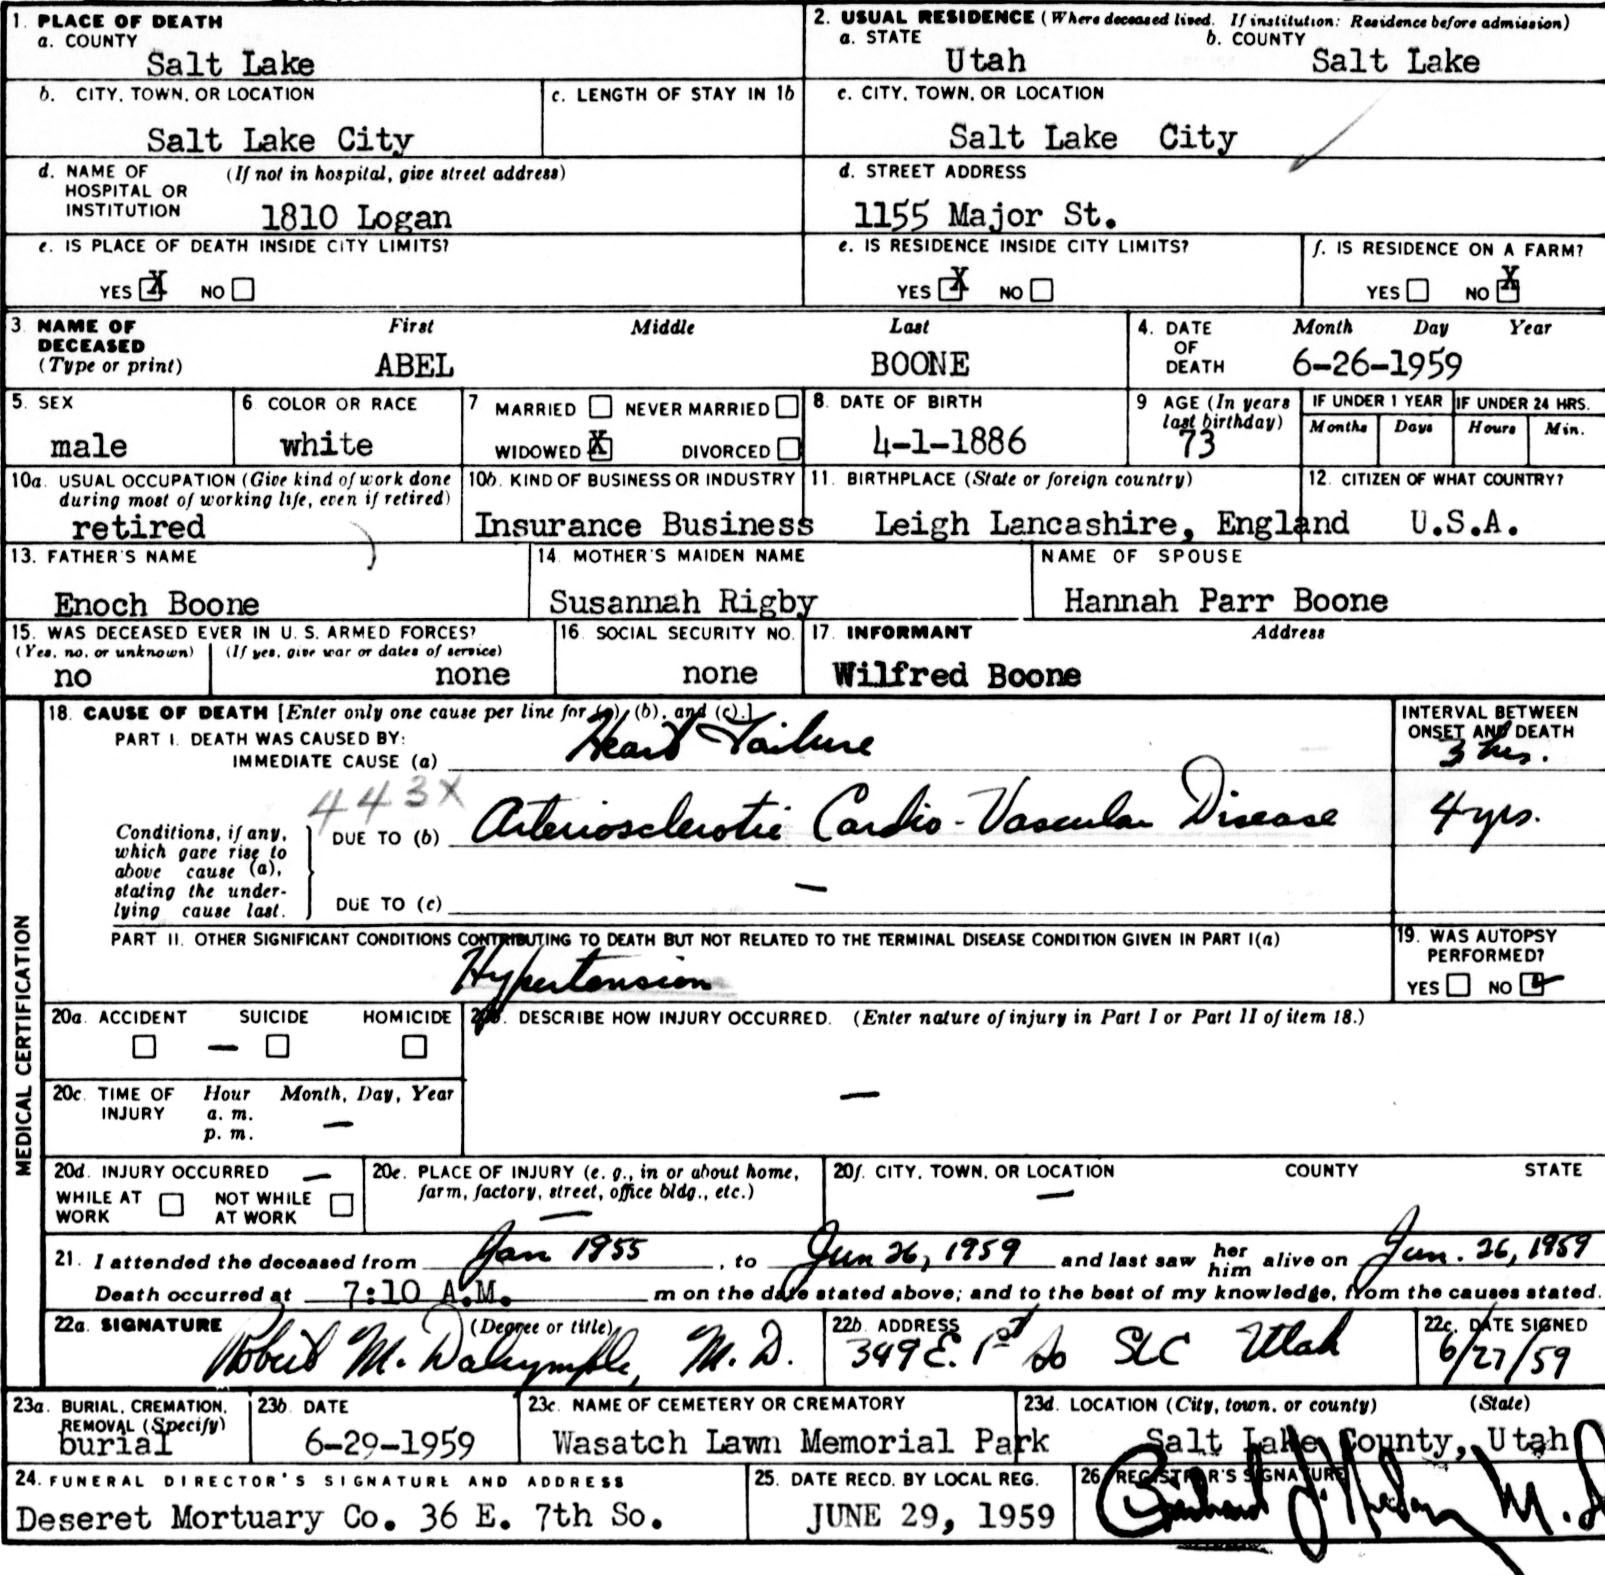 1. PLACE OF DEATH
a. COUNTY
Salt Lake
2. USUAL RESIDENCE (Where deceased lived. If institution: Residence before admission)
a. STATE b. COUNTY
Utah Salt Lake
b. CITY, TOWN, OR LOCATION
Salt Lake City
c. LENGTH OF STAY IN 1b
c. CITY, TOWN, OR LOCATION
Salt Lake City
d. NAME OF (If not in hospital, give street address)
HOSPITAL OR
INSTITUTION
1810 Logan
d. STREET ADDRESS
1155 Major St.
e. IS PLACE OF DEATH INSIDE CITY LIMITS?
YES X NO
e. IS RESIDENCE INSIDE CITY LIMITS?
YES X NO
f. IS RESIDENCE ON A FARM?
YES NO X
3. NAME OF First Middle Last
DECEASED
(Type or print)
ABEL BOONE
4. DATE Month Day Year
OF
DEATH
6-26-1959
5. SEX
male
6. COLOR OR RACE
white
7 MARRIED NEVER MARRIED
WIDOWED X DIVORCED
8. DATE OF BIRTH
4-1-1886
9 AGE (In years
last birthday)
73
IF UNDER 1 YEAR
Months Days
IF UNDER 24 HRS.
Hours Min.
10a. USUAL OCCUPATION (Give kind of work done
during most of working life, even if retired)
retired
10b. KIND OF BUSINESS OR INDUSTRY
Insurance Business
11. BIRTHPLACE (State or foreign country)
Leigh Lancashire, England
12. CITIZEN OF WHAT COUNTRY?
U.S.A.
13. FATHER'S NAME
Enoch Boone
14. MOTHER'S MAIDEN NAME
Susannah Rigby
NAME OF SPOUSE
Hannah Parr Boone
15. WAS DECEASED EVER IN U. S. ARMED FORCES?
(Yes, no, or unknown) (If yes, give war or dates of service)
no none
16. SOCIAL SECURITY NO.
none
17. INFORMANT Address
Wilfred Boone
MEDICAL CERTIFICATION
18. CAUSE OF DEATH [Enter only one cause per line for (a), (b), and (c).]
PART I. DEATH WAS CAUSED BY:
IMMEDIATE CAUSE (a) Heart Failure
INTERVAL BETWEEN
ONSET AND DEATH
3 hrs.
443X
Conditions, if any,
which gave rise to
above cause (a),
stating the under-
lying cause last.
DUE TO (b) Arteriosclerotic Cardio-Vascular Disease
4 yrs.
DUE TO (c) —
PART II. OTHER SIGNIFICANT CONDITIONS CONTRIBUTING TO DEATH BUT NOT RELATED TO THE TERMINAL DISEASE CONDITION GIVEN IN PART I(a)
Hypertension
19. WAS AUTOPSY
PERFORMED?
YES NO
20a. ACCIDENT SUICIDE HOMICIDE
—
20b. DESCRIBE HOW INJURY OCCURRED. (Enter nature of injury in Part I or Part II of item 18.)
—
20c. TIME OF Hour Month, Day, Year
INJURY a. m.
p. m. —
20d. INJURY OCCURRED —
WHILE AT NOT WHILE
WORK AT WORK
20e. PLACE OF INJURY (e. g., in or about home,
farm, factory, street, office bldg., etc.)
—
20f. CITY, TOWN, OR LOCATION COUNTY STATE
—
21. I attended the deceased from Jan 1955, to Jun 26, 1959 and last saw her him alive on Jun. 26, 1959
Death occurred at 7:10 A.M. m on the date stated above; and to the best of my knowledge, from the causes stated.
22a. SIGNATURE (Degree or title)
Robert M. Dalrymple, M. D.
22b. ADDRESS
349 E. 1st So SLC Utah
22c. DATE SIGNED
6/27/59
23a. BURIAL, CREMATION,
REMOVAL (Specify)
burial
23b. DATE
6-29-1959
23c. NAME OF CEMETERY OR CREMATORY
Wasatch Lawn Memorial Park
23d. LOCATION (City, town, or county) (State)
Salt Lake County, Utah
24. FUNERAL DIRECTOR'S SIGNATURE AND ADDRESS
Deseret Mortuary Co. 36 E. 7th So.
25. DATE RECD. BY LOCAL REG.
JUNE 29, 1959
26. REGISTRAR'S SIGNATURE